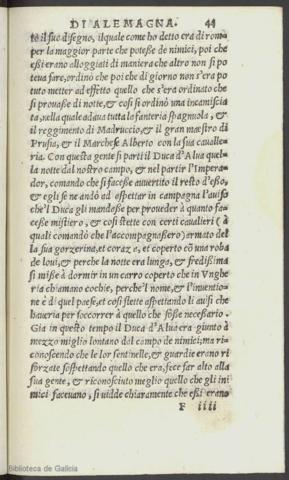 DI ALEMAGNA. 44
to il suo disegno, ilquale come ho detto era di rom-
per la maggior parte che potesse de nimici, poi che
essi erano alloggiati di maniera che altro non si po
teua fare, ordinò che poi che di giorno non s'era po
tuto metter ad effetto quello che s'era ordinato che
si prouasse di notte, & cosi si ordinò una incamiscia
ta, nella quale adaua tutta la fanteria spagnuola, &
il reggimento di Madruccio, & il gran maestro di
Prusia, & il Marchese Alberto con la sua caualle-
ria. Con questa gente si partì il Duca d'Alua quel-
la notte dal nostro campo, & nel partir l'Impera-
dor, comando che si facesse auuertito il resto d'esso,
& egli se ne andò ad aspettar in campagna l'auiso
che'l Duca gli mandasse per proueder à quanto fa-
cesse mistiero, & così stette con certi caualieri (à
quali comandò che l'accompagnassero) armato del
la sua gorzerina, et coraz a, et coperto cō una roba
de loui, & perche la notte era lunga, & fredissima
si misse à dormir in un carro coperto che in Vnghe
ria chiamano cochie, perche'l nome, & l'inuentio-
ne è di quel paese, et cosi stette aspettando li auisi che
haueria per soccorrer à quello che fosse necessario.
Gia in questo tempo il Duca d'Alua era giunto à
mezzo miglio lontano dal campo de nimici, ma ri-
conoscendo che le lor sentinelle, & guardie erano ri
forzate sospettando quello che era, fece far alto alla
sua gente, & riconosciuto meglio quello che gli ini
mici faceuano, si uidde chiaramente che essi erano
F iiii
Biblioteca de Galicia